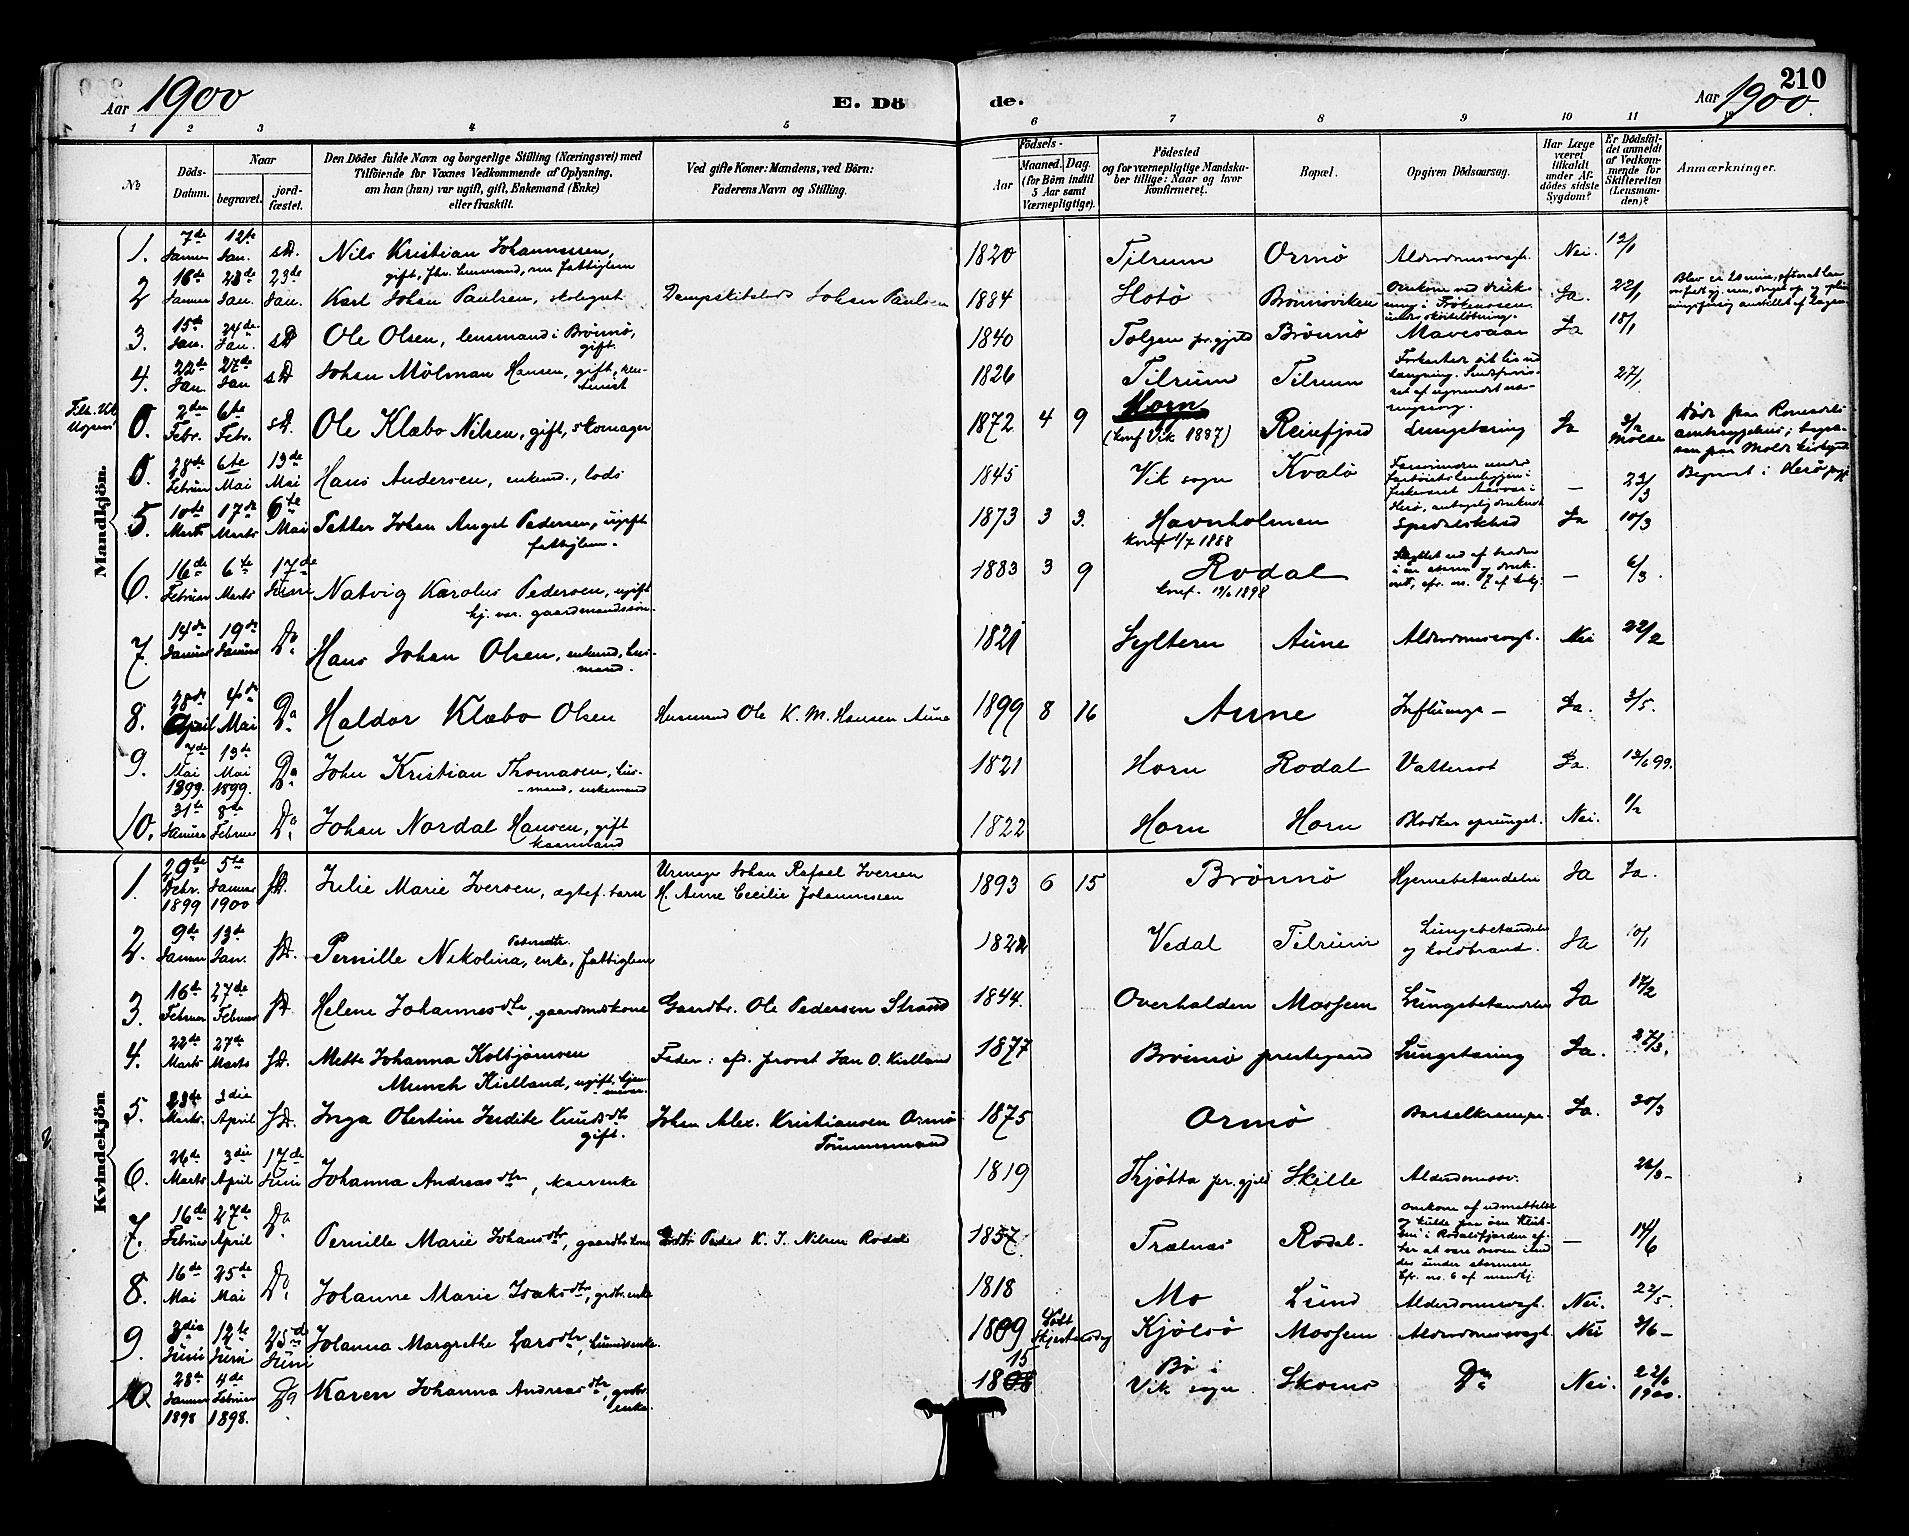 Aar 1900
E. Dö
de.
Aar 1900.
210
1 2 3 4 5 6 7 8 9 10 11 12
№
Döds-
Datum.
Naar
begravet.
jord-
fæstet.
Den Dödes fulde Navn og borgerlige Stilling (Næringsvei) med
Tilföiende for Voxnes Vedkommende af Oplysning,
om han (hun) var ugift, gift, Enkemand (Enke)
eller fraskilt.
Ved gifte Koner: Mandens, ved Börn:
Faderens Navn og Stilling.
Födsels-
Aar
Maaned. Dag.
(for Börn indtil
5 Aar samt
Værnepligtige).
Födested
og for værnepligtige Mandska-
ber tillige: Naar og hvor
konfirmeret.
Bopæl.
Opgiven Dödsaarsag.
Har Læge
været
tilkaldt
under Af-
dödes sidste
Sygdom?
Er Dödsfal-
det anmeldt
af Vedkom-
mende for
Skifteretten
(Lensman-
den)?
Anmærkninger.
Mandkjön.
1. 7de Januar 12te Jan. s.D. Nils Kristian Johannessen, 1820 Tilrum Ormö Alderdomssvagh. Nei. 12/1
gift, fhv. lensmand, nu fattiglem
2 16de Januar 23de Jan. 23de Jan. Karl Johan Paulsen, skolegut Johan Paulsen 1884 Hotö Brönnöviken Ja. 22/1
Omkom ved druk-
3. 15de Jan. 24de Jan. s.D. Ole Olsen, lensmand i Brönnö, 1840 Tolgen pr.gjeld Brönnö Mavesaar Ja 18/1
gift.
4. 22de Jan. 27de Jan s.D. Johan Mölman Hansen, gift, 1826 Tilrum Tilrum 27/1
0. 2den Febr. 6te Febr. s.D. Ole Klæbo Nilsen, gift, skomager 1872 4 9 Horn Reinfjord Lungetæring Ja 3/2 Molde
(konf. Vik 1887)
Död paa Romsdals
amtssygehus; begra-
ven paa Molde kirkegaard
0. 28de Februar 6te Mai 13de Mai Hans Andersen, enkem., lods 1845 Vik sogn Kvalö — 23/3 Begravet i Herö
5. 10de Marts 17de Marts 6te Mai Petter Johan Angel Pedersen, ugift 1873 3 3. Havnholmen Spedalskhed Ja 10/3
fattiglem.
konf 1/7 1888
6. 16de Februar 6te Marts 17de Juni Natvig Karolus Pedersen, ugift 1883 3 9 Rodal — 6/3.
hj. vær. gaardmandssön.
konf. 19/6 1898
7. 14de Januar 19de Januar Do Hans Johan Olsen, enkem, hus- 1821 Sylteren Aune Alderdomssvagh. Nei 22/2
mand.
8. 28de April 4de Mai Do Haldor Klæbo Olsen Husmand Ole K. M. Hansen Aune 1899 8 16 Aune Influenza — Ja. 3/5.
9. 7de Mai 1899. 13de Mai 1899. Do John Kristian Thomasen, hus- 1821 Horn Rodal Vattersot Ja. 13/6 99.
mand, enkemand
10. 31te Januar 8de Februar Do Johan Nordal Hansen, gift 1822 Horn Horn Blodkar sprunget. Nei. 1/2
kaarmand
Kvindekjön
1. 29de Debr. 1899 5te Januar 1900 s.D. Julie Marie Iversen, ægtef. barn Urmager Johan Rafael Iversen 1893 6 15 Brönnö Hjernebetændelse Ja Ja.
H. Anne Cecilie Johannessen
2. 9de Januar 13de Jan. s.D. Pernille Nikolina Pedersdtr., enke, fattiglem Vedal Tilrum Lungebetændelse Ja 10/1
og koldbrand.
3. 16de Februar 27de Februar s.D. Helene Johannesdtr, gaardmdskone Gaardbr. Ole Pedersen Strand 1844. Overhalden Mosheim Lungebetændelse Ja 17/2
4. 22de Marts 27de Marts s.D. Mette Johanna Kolbjörnsen Fader: afd. provst Jan O. Kielland 1877 Brönnö prestegaard Lungetæring Ja. 27/3.
Munch Kielland, ugift, hjem-
5. 23de Marts. 3die April s.D. Inga Obertine Judite Knudsdtr Johan Alex. Kristiansen Ormö 1875 Ormö Barselkrampe. Ja. 30/3
gift. Tömmermand
6. 26de Marts 3die April 17de Juni Johanna Andreasdtr, kaarenke 1819 Thjötta pr.gjeld Skille Alderdomssv. 26/3 —
7. 16de Februar 27de April Do Pernille Marie Johansdtr, gaardbr.kone Gdbr Peder K. J. Nilsen Rodal 1857. Trælnes Rodal. — 14/6
Omkom af udmattelse
og kulde paa
i Rodalsfjorden ef-
ter at være dreven ind
under stormen
Cfr. no. 6 af mandkj.
8. 16de Mai 25de Mai Do Johanne Marie Isaksdtr, grdbr.enke 1818 Mo Lund Alderdomssvagh. Nei. 22/5.
9. 3die Juni 12te Juni 25de Juni Johanna Margrethe Larsdtr, husmdsenke. 1809 Kjölsö Mosheim Alderdomssvagh Nei 3/6 —
10. 28de Januar 1898 4de Februar 1898. Do Karen Johanna Andreasdtr, grdbr. 15 Bö i Vik sogn. Skomo Do Nei. 22/6 1900.
enke.